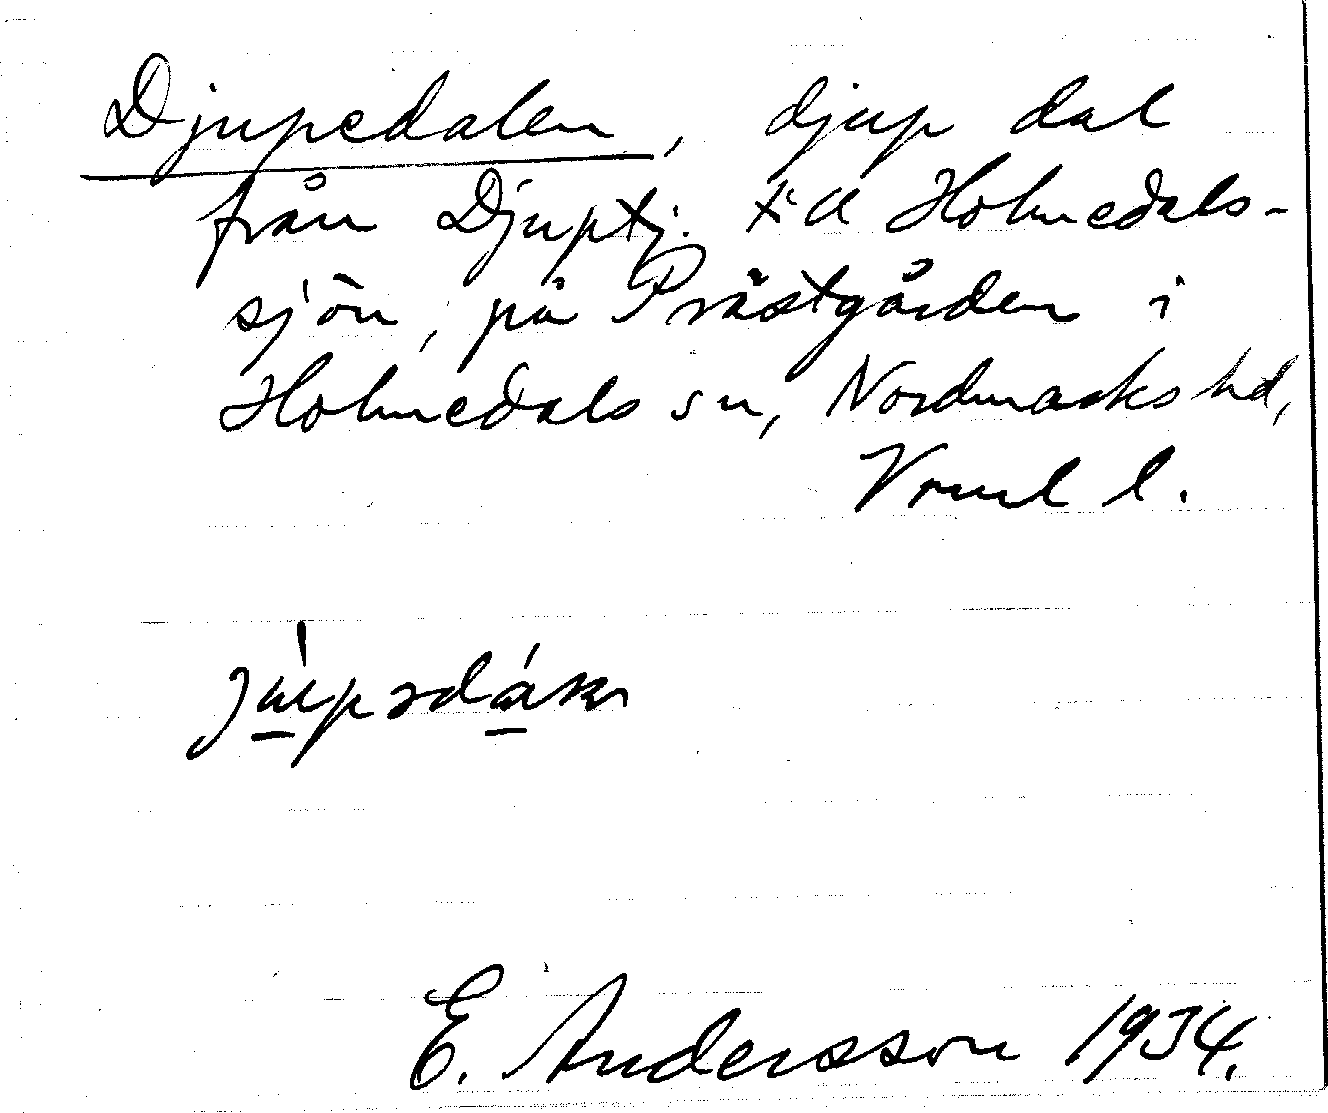 Djupedalen, djup dal
från Djuptj. till Holmedals-
sjön, på Prästgården i
Holmedals sn, Nordmarks hd,
Vrml l.
E. Andersson 1934.